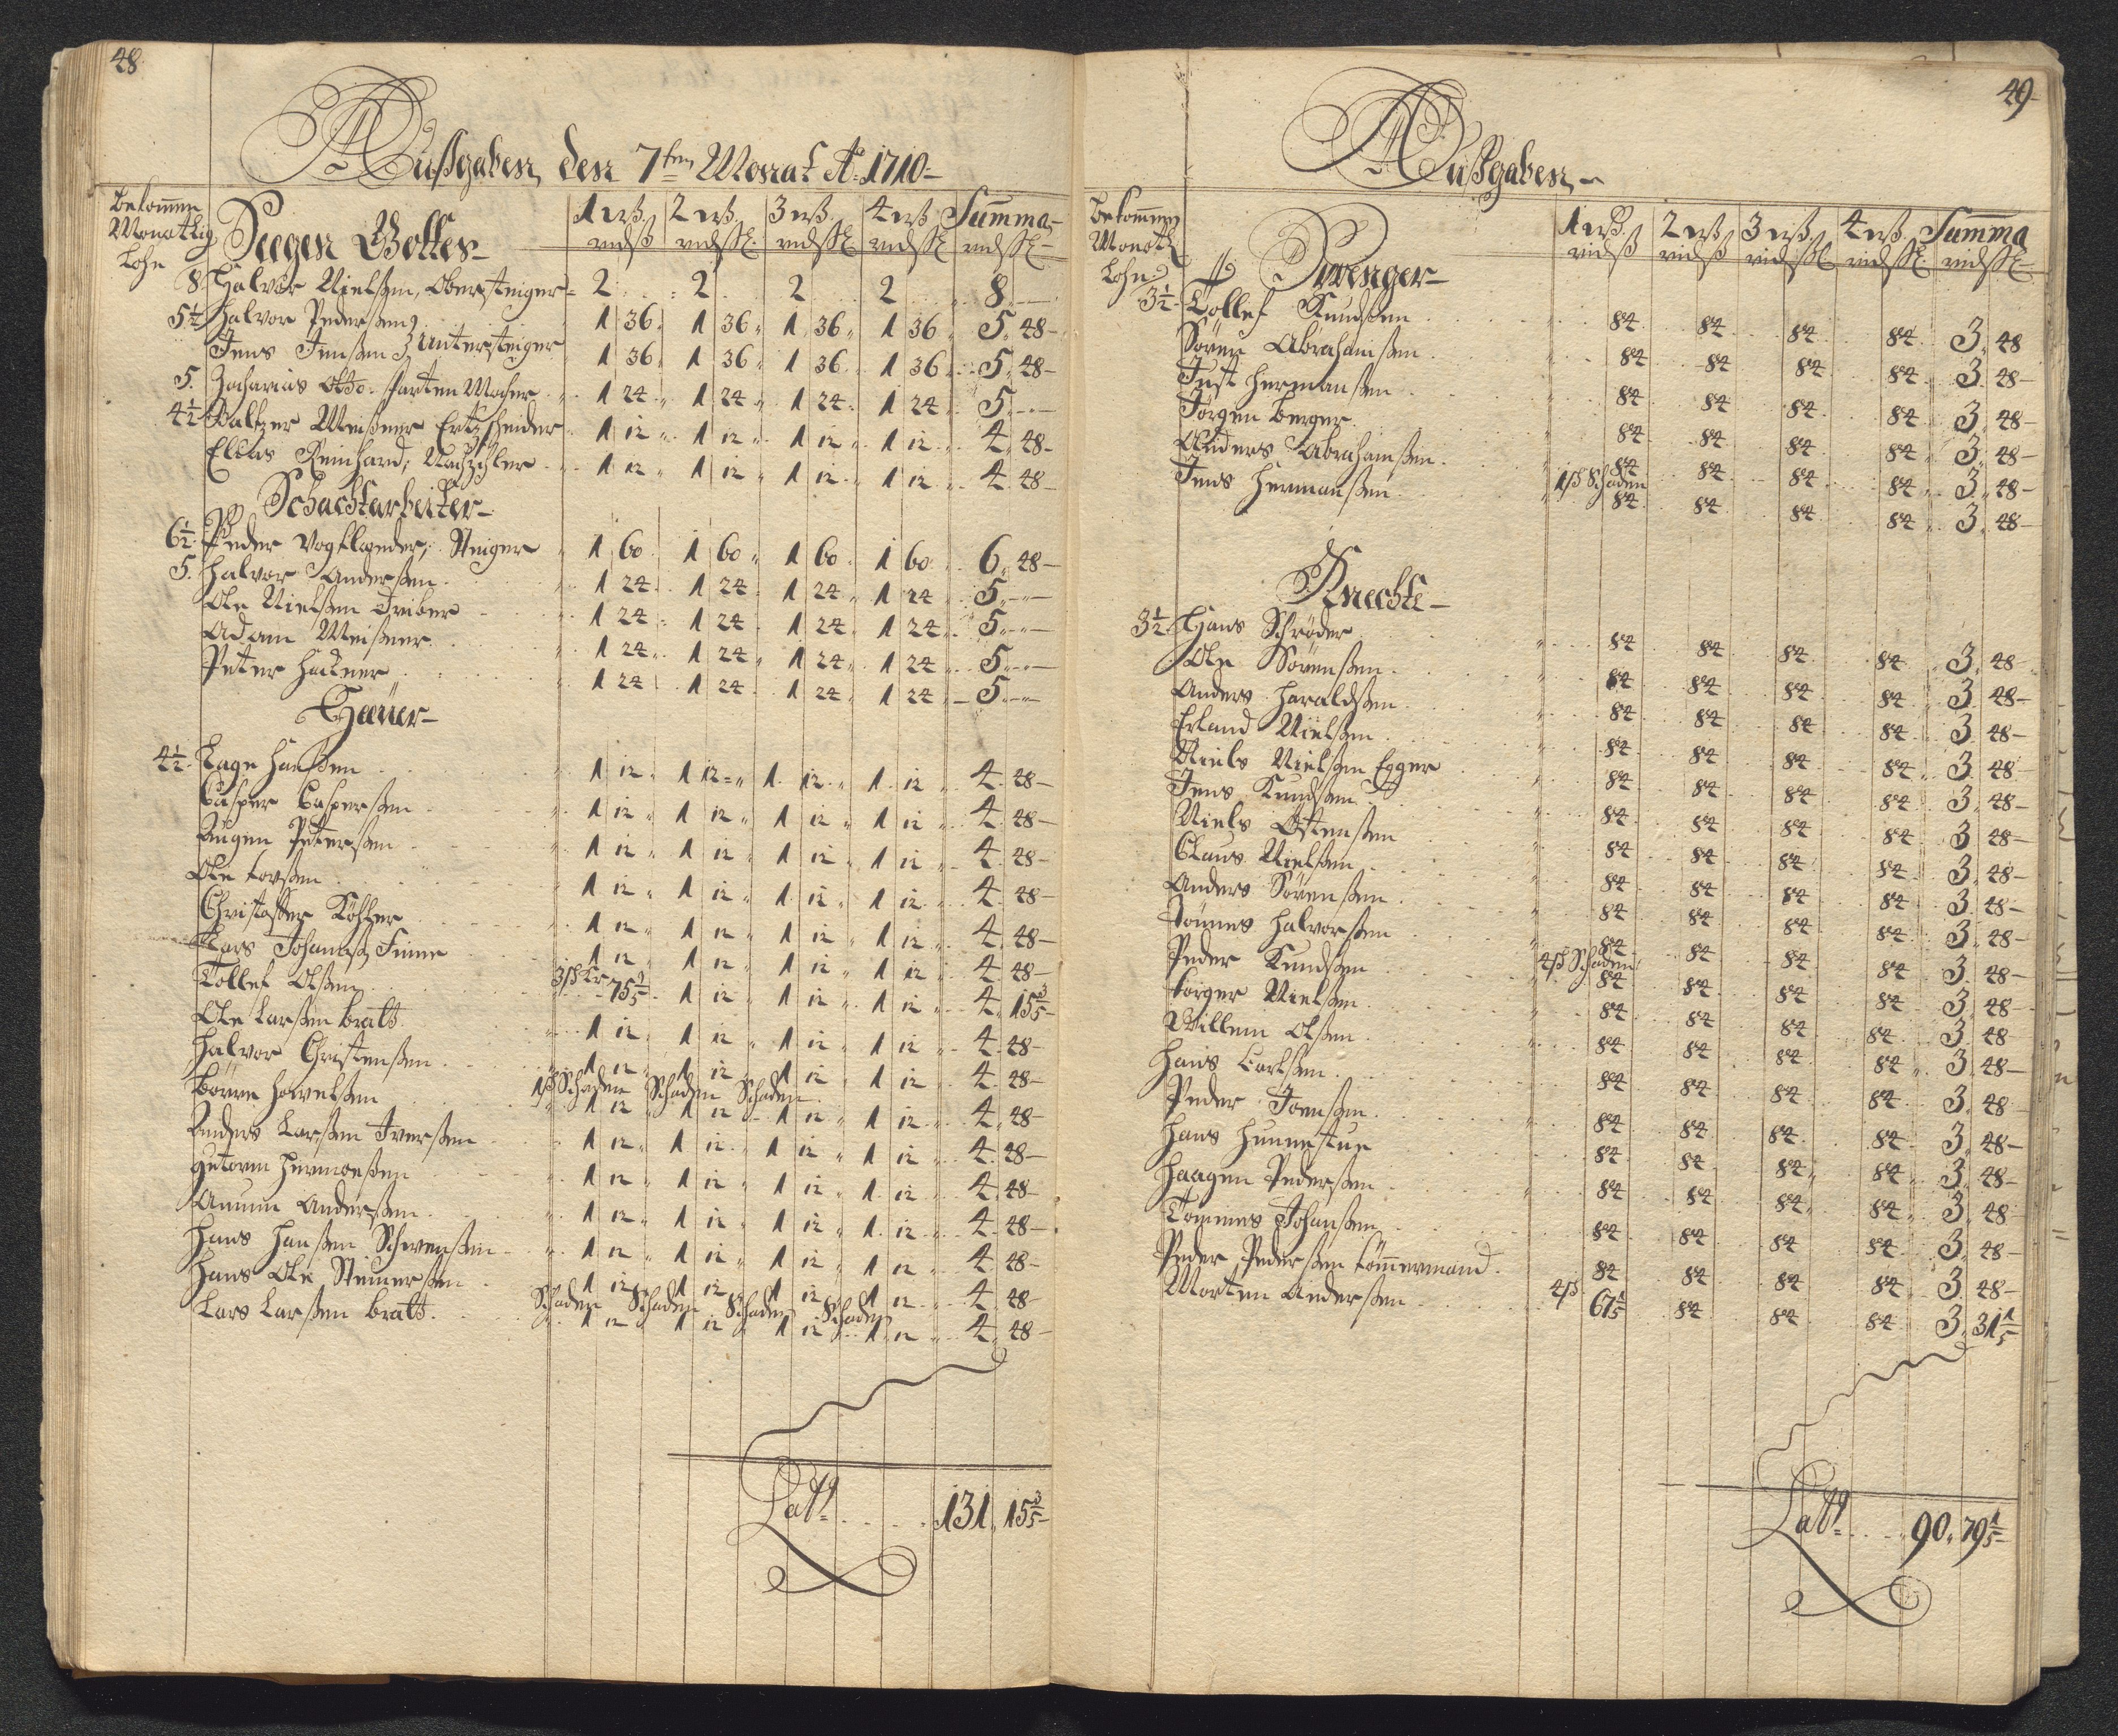 48
Außgaben den 7ten Monat Ao 1710
Bekommen
Monatlig
Lohn
Seegen Gottes
1 ws. 2 ws. 3 ws. 4 ws. Summa
8. Halvor Nielsen, Obersteiger 2 2 2 2 8
5½ Halvor Pedersen 1 36 1 36 1 36 1 36 5 48
Jens Jensen Untersteiger 1 36 1 36 1 36 1 36 5 48
5. Zacharias Otto 1 24 1 24 1 24 1 24 5
4½ Baltzer Meißner Ertzscheider 1 12 1 12 1 12 1 12 4 48
Elias Reinhard, Nachzehler 1 12 1 12 1 12 1 12 4 48
Schachtarbeiter
6½ Peder Vogtlender, Steiger 1 60 1 60 1 60 1 60 6 48
5. Halvor Andersen 1 24 1 24 1 24 1 24 5
Ole Nielsen Triber 1 24 1 24 1 24 1 24 5
Adam Meißner 1 24 1 24 1 24 1 24 5
Peter Hackner 1 24 1 24 1 24 1 24 5
Häuer
4½ Tage Hanßen 1 12 1 12 1 12 1 12 4 48
Casper Caspersen 1 12 1 12 1 12 1 12 4 48
Augen Petersen 1 12 1 12 1 12 1 12 4 48
Ole Torsen 1 12 1 12 1 12 1 12 4 48
Christoffer Köhler 1 12 1 12 1 12 1 12 4 48
Lars Johanß Finne 1 12 1 12 1 12 1 12 4 48
Tollef Olsen 3ß 75 3/5 1 12 1 12 1 12 4 15 3/5
Ole Larsen Bratt 1 12 1 12 1 12 1 12 4 48
Halvor Christensen 1 12 1 12 1 12 1 12 4 48
1ß Schaden Schaden Schaden
Börre Hovelsen 1 12 1 12 1 12 1 12 4 48
Anders Larsen Iversen 1 12 1 12 1 12 1 12 4 48
Gutorm Hermoesen 1 12 1 12 1 12 1 12 4 48
Amun Andersen 1 12 1 12 1 12 1 12 4 48
Hans Hansen Schwensen 1 12 1 12 1 12 1 12 4 48
Hans Ole Steinersen 1 12 1 12 1 12 1 12 4 48
Schaden Schaden Schaden Schaden
Lars Larsen Bratt 1 12 1 12 1 12 1 12 4 48
Latt 131 15 3/5
49
Außgaben
Bekommen
Monatl
Lohn
Swenger
1 ws. 2 ws. 3 ws. 4 ws. Summa
3½ Tollef Knudsen 84 84 84 84 3 48
Sören Abrahamsen 84 84 84 84 3 48
Just Hermansen 84 84 84 84 3 48
Jörgen Berger 84 84 84 84 3 48
Anders Abrahamsen 84 84 84 84 3 48
1ß Schaden
Jens Hermansen 84 84 84 84 3 48
Knechte
3½ Hans Schröder 84 84 84 84 3 48
Ole Sörensen 84 84 84 84 3 48
Anders Haraldsen 84 84 84 84 3 48
Erland Nielsen 84 84 84 84 3 48
Niels Nielsen Egger 84 84 84 84 3 48
Jens Knudsen 84 84 84 84 3 48
Niels Östensen 84 84 84 84 3 48
Claus Nielsen 84 84 84 84 3 48
Anders Sörensen 84 84 84 84 3 48
Tönnes Halvorsen 84 84 84 84 3 48
4ß Schaden
Peder Knudsen 84 84 84 84 3 48
Torger Nielsen 84 84 84 84 3 48
Willem Olsen 84 84 84 84 3 48
Hans Carlsen 84 84 84 84 3 48
Peder Joensen 84 84 84 84 3 48
Hans Hunnestue 84 84 84 84 3 48
Haagen Pedersen 84 84 84 84 3 48
Tommes Johansen 84 84 84 84 3 48
Peder Pedersen Tömmermand 84 84 84 84 3 48
Morten Andersen 4ß 67 1/5 84 84 84 3 31 1/5
Latt 90 79 1/5